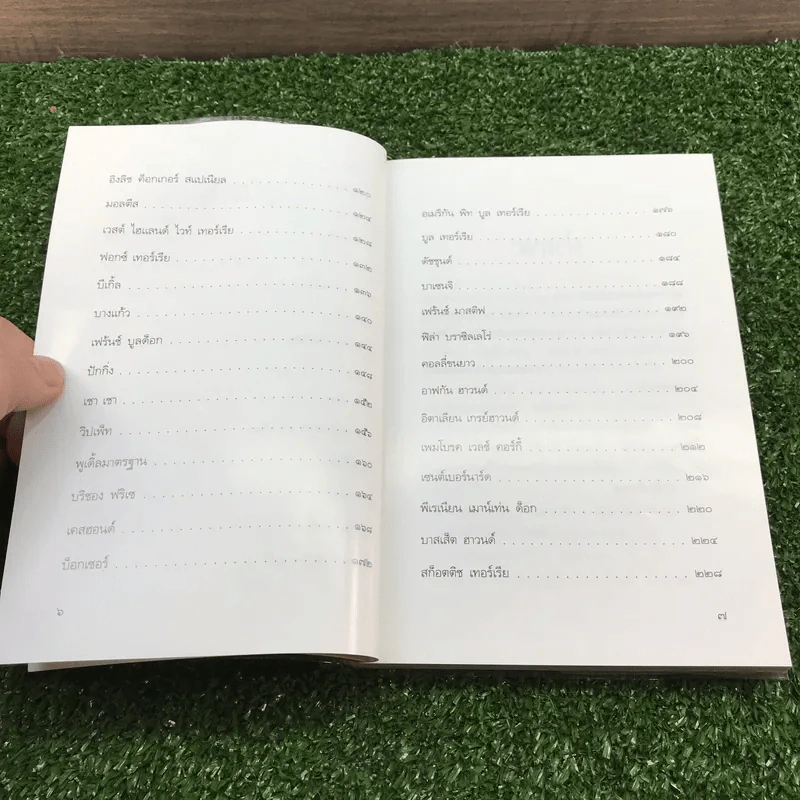 อิงลิช ค็อกเกอร์ สแปเนียล . . . . . . . . . . . . . . . ๑๒๐
มอลตีส . . . . . . . . . . . . . . . . . . . . . . ๑๒๔
เวสต์ ไฮแลนด์ ไวท์ เทอร์เรีย . . . . . . . . . . . . . . ๑๒๘
ฟอกซ์ เทอร์เรีย . . . . . . . . . . . . . . . . . . . ๑๓๒
บีเกิ้ล . . . . . . . . . . . . . . . . . . . . . . . ๑๓๖
บางแก้ว . . . . . . . . . . . . . . . . . . . . . . ๑๔๐
เฟร้นช์ บูลด็อก . . . . . . . . . . . . . . . . . . . ๑๔๔
ปักกิ่ง . . . . . . . . . . . . . . . . . . . . . . . ๑๔๘
เชา เชา . . . . . . . . . . . . . . . . . . . . . . ๑๕๒
วิปเพ็ท . . . . . . . . . . . . . . . . . . . . . . ๑๕๖
พูเดิ้ลมาตรฐาน . . . . . . . . . . . . . . . . . . . ๑๖๐
บริซอง ฟริเซ . . . . . . . . . . . . . . . . . . . . ๑๖๔
เคสฮอนด์ . . . . . . . . . . . . . . . . . . . . . ๑๖๘
บ็อกเซอร์ . . . . . . . . . . . . . . . . . . . . . ๑๗๒
๖
อเมริกัน พิท บูล เทอร์เรีย . . . . . . . . . . . . ๑๗๖
บูล เทอร์เรีย . . . . . . . . . . . . . . . . . . . ๑๘๐
ดัชชุนด์ . . . . . . . . . . . . . . . . . . . . . ๑๘๔
บาเซนจิ . . . . . . . . . . . . . . . . . . . . . ๑๘๘
เฟร้นช์ มาสตีฟ . . . . . . . . . . . . . . . . . . ๑๙๒
ฟิล่า บราซิลเลโร่ . . . . . . . . . . . . . . . . . ๑๙๖
คอลลี่ขนยาว . . . . . . . . . . . . . . . . . . . ๒๐๐
อาฟกัน ฮาวนด์ . . . . . . . . . . . . . . . . . . ๒๐๔
อิตาเลียน เกรย์ฮาวนด์ . . . . . . . . . . . . . . . ๒๐๘
เพมโบรค เวลช์ คอร์กี้ . . . . . . . . . . . . . . . ๒๑๒
เซนต์เบอร์นาร์ด . . . . . . . . . . . . . . . . . . ๒๑๖
พีเรเนียน เมาน์เท่น ด็อก . . . . . . . . . . . . . . ๒๒๐
บาสเส็ต ฮาวนด์ . . . . . . . . . . . . . . . . . . ๒๒๔
สก็อตติช เทอร์เรีย . . . . . . . . . . . . . . . . . ๒๒๘
๗